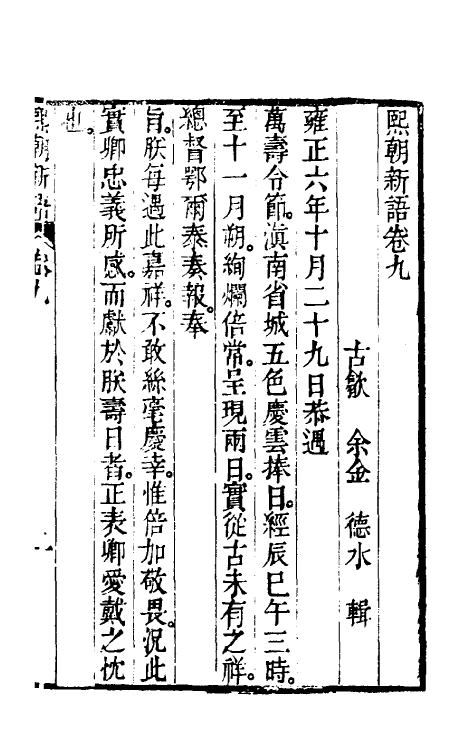 熙朝新語卷九
古歙 余金 德水 輯
雍正六年十月二十九日恭遇
萬壽令節。滇南省城五色慶雲捧日。經辰巳午三時。
至十一月朔。絢爛倍常。呈現兩日。實從古未有之祥。
總督鄂爾泰奏報。奉
旨。朕每遇此嘉祥。不敢絲毫慶幸。惟倍加敬畏。況此
實卿忠義所感。而獻於朕壽日者。正表卿愛戴之忱
也。
熙朝新語 卷九 一